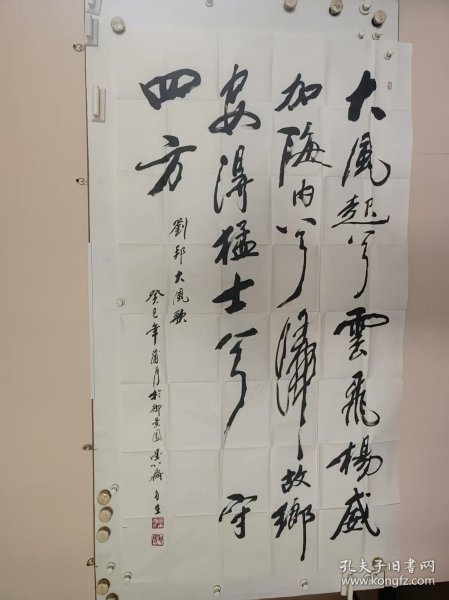 大風起兮雲飛楊威
加海内兮歸故鄉
安得猛士兮守
四方
劉邦大風歌
癸巳年蒲月於御景園
孔夫子旧书网
www.kongfz.com